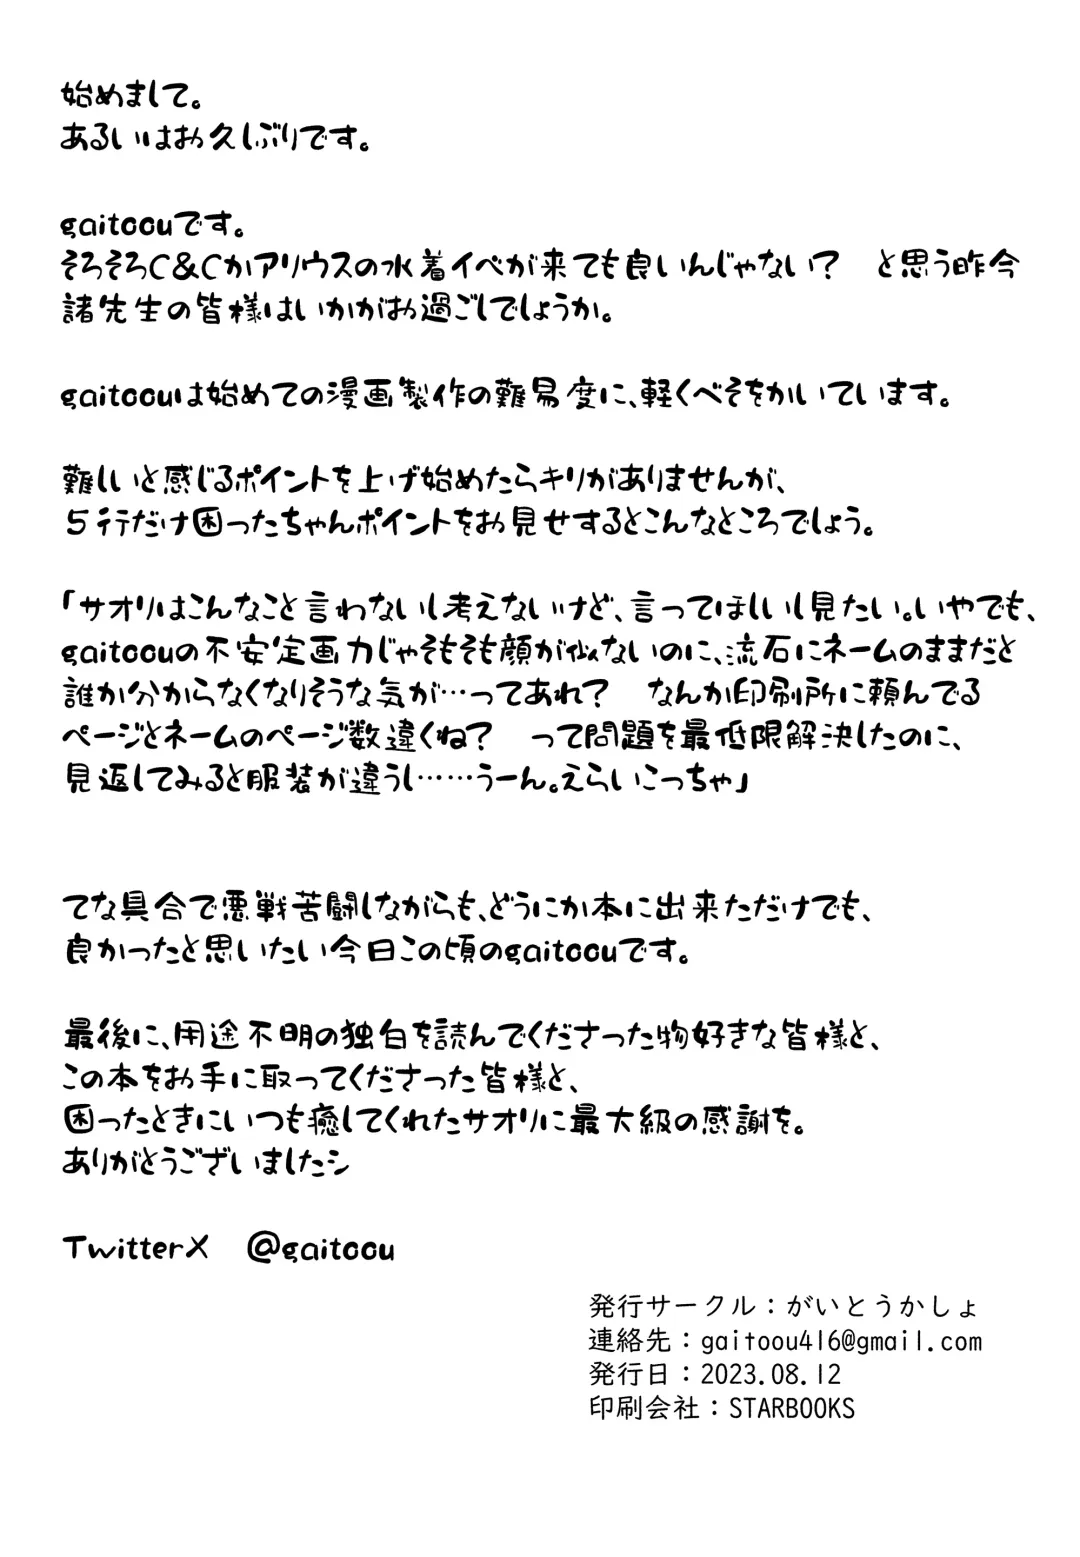 始めまして。
あるいはお久しぶりです。
gaitoouです。
そろそろC&Cかアリウスの水着イベが来ても良いんじゃない？　と思う昨今
諸先生の皆様はいかがお過ごしでしょうか。
gaitoouは始めての漫画製作の難易度に、軽くべそをかいています。
難しいと感じるポイントを上げ始めたらキリがありませんが、
５行だけ困ったちゃんポイントをお見せするとこんなところでしょう。
「サオリはこんなこと言わないし考えないけど、言ってほしいし見たい。いやでも、
gaitoouの不安定画力じゃそもそも顔が似ないのに、流石にネームのままだと
誰か分からなくなりそうな気が…ってあれ？　なんか印刷所に頼んでる
ページとネームのページ数違くね？　って問題を最低限解決したのに、
見返してみると服装が違うし……うーん。えらいこっちゃ」
てな具合で悪戦苦闘しながらも、どうにか本に出来ただけでも、
良かったと思いたい今日この頃のgaitoouです。
最後に、用途不明の独白を読んでくださった物好きな皆様と、
この本をお手に取ってくださった皆様と、
困ったときにいつも癒してくれたサオリに最大級の感謝を。
ありがとうございましたシ
TwitterX　@gaitoou
発行サークル：がいとうかしょ
連絡先：gaitoou416@gmail.com
発行日：2023.08.12
印刷会社：STARBOOKS